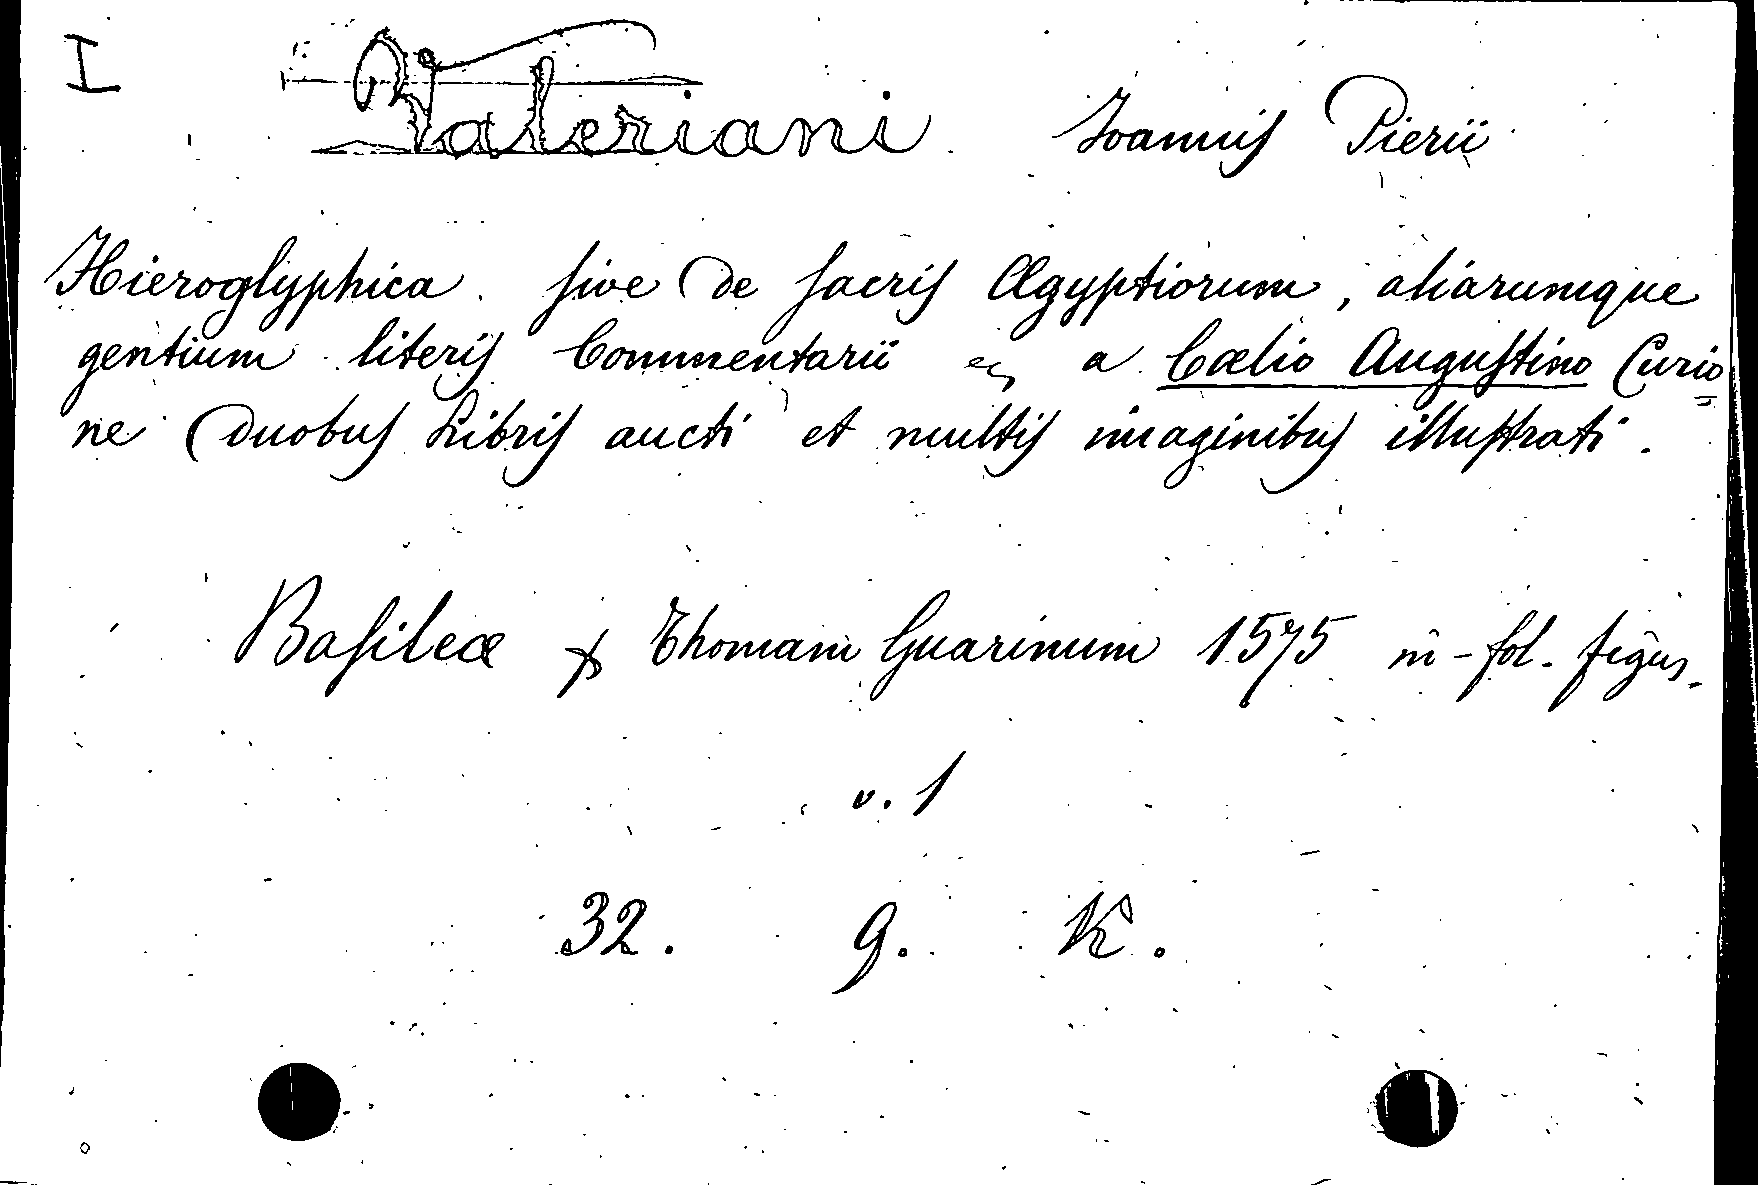 I Valeriani Joannis Pierii
Hieroglyphica. sive de sacris Ægyptiorum, aliarumque
gentium literis Commentarii a Cœlio Augustino Curio
ne duobus Libris aucti et multis imaginibus illustrati.
Basileæ Thomam Guarinum 1575 in-fol. figur.
v. 1
32. 9. K.